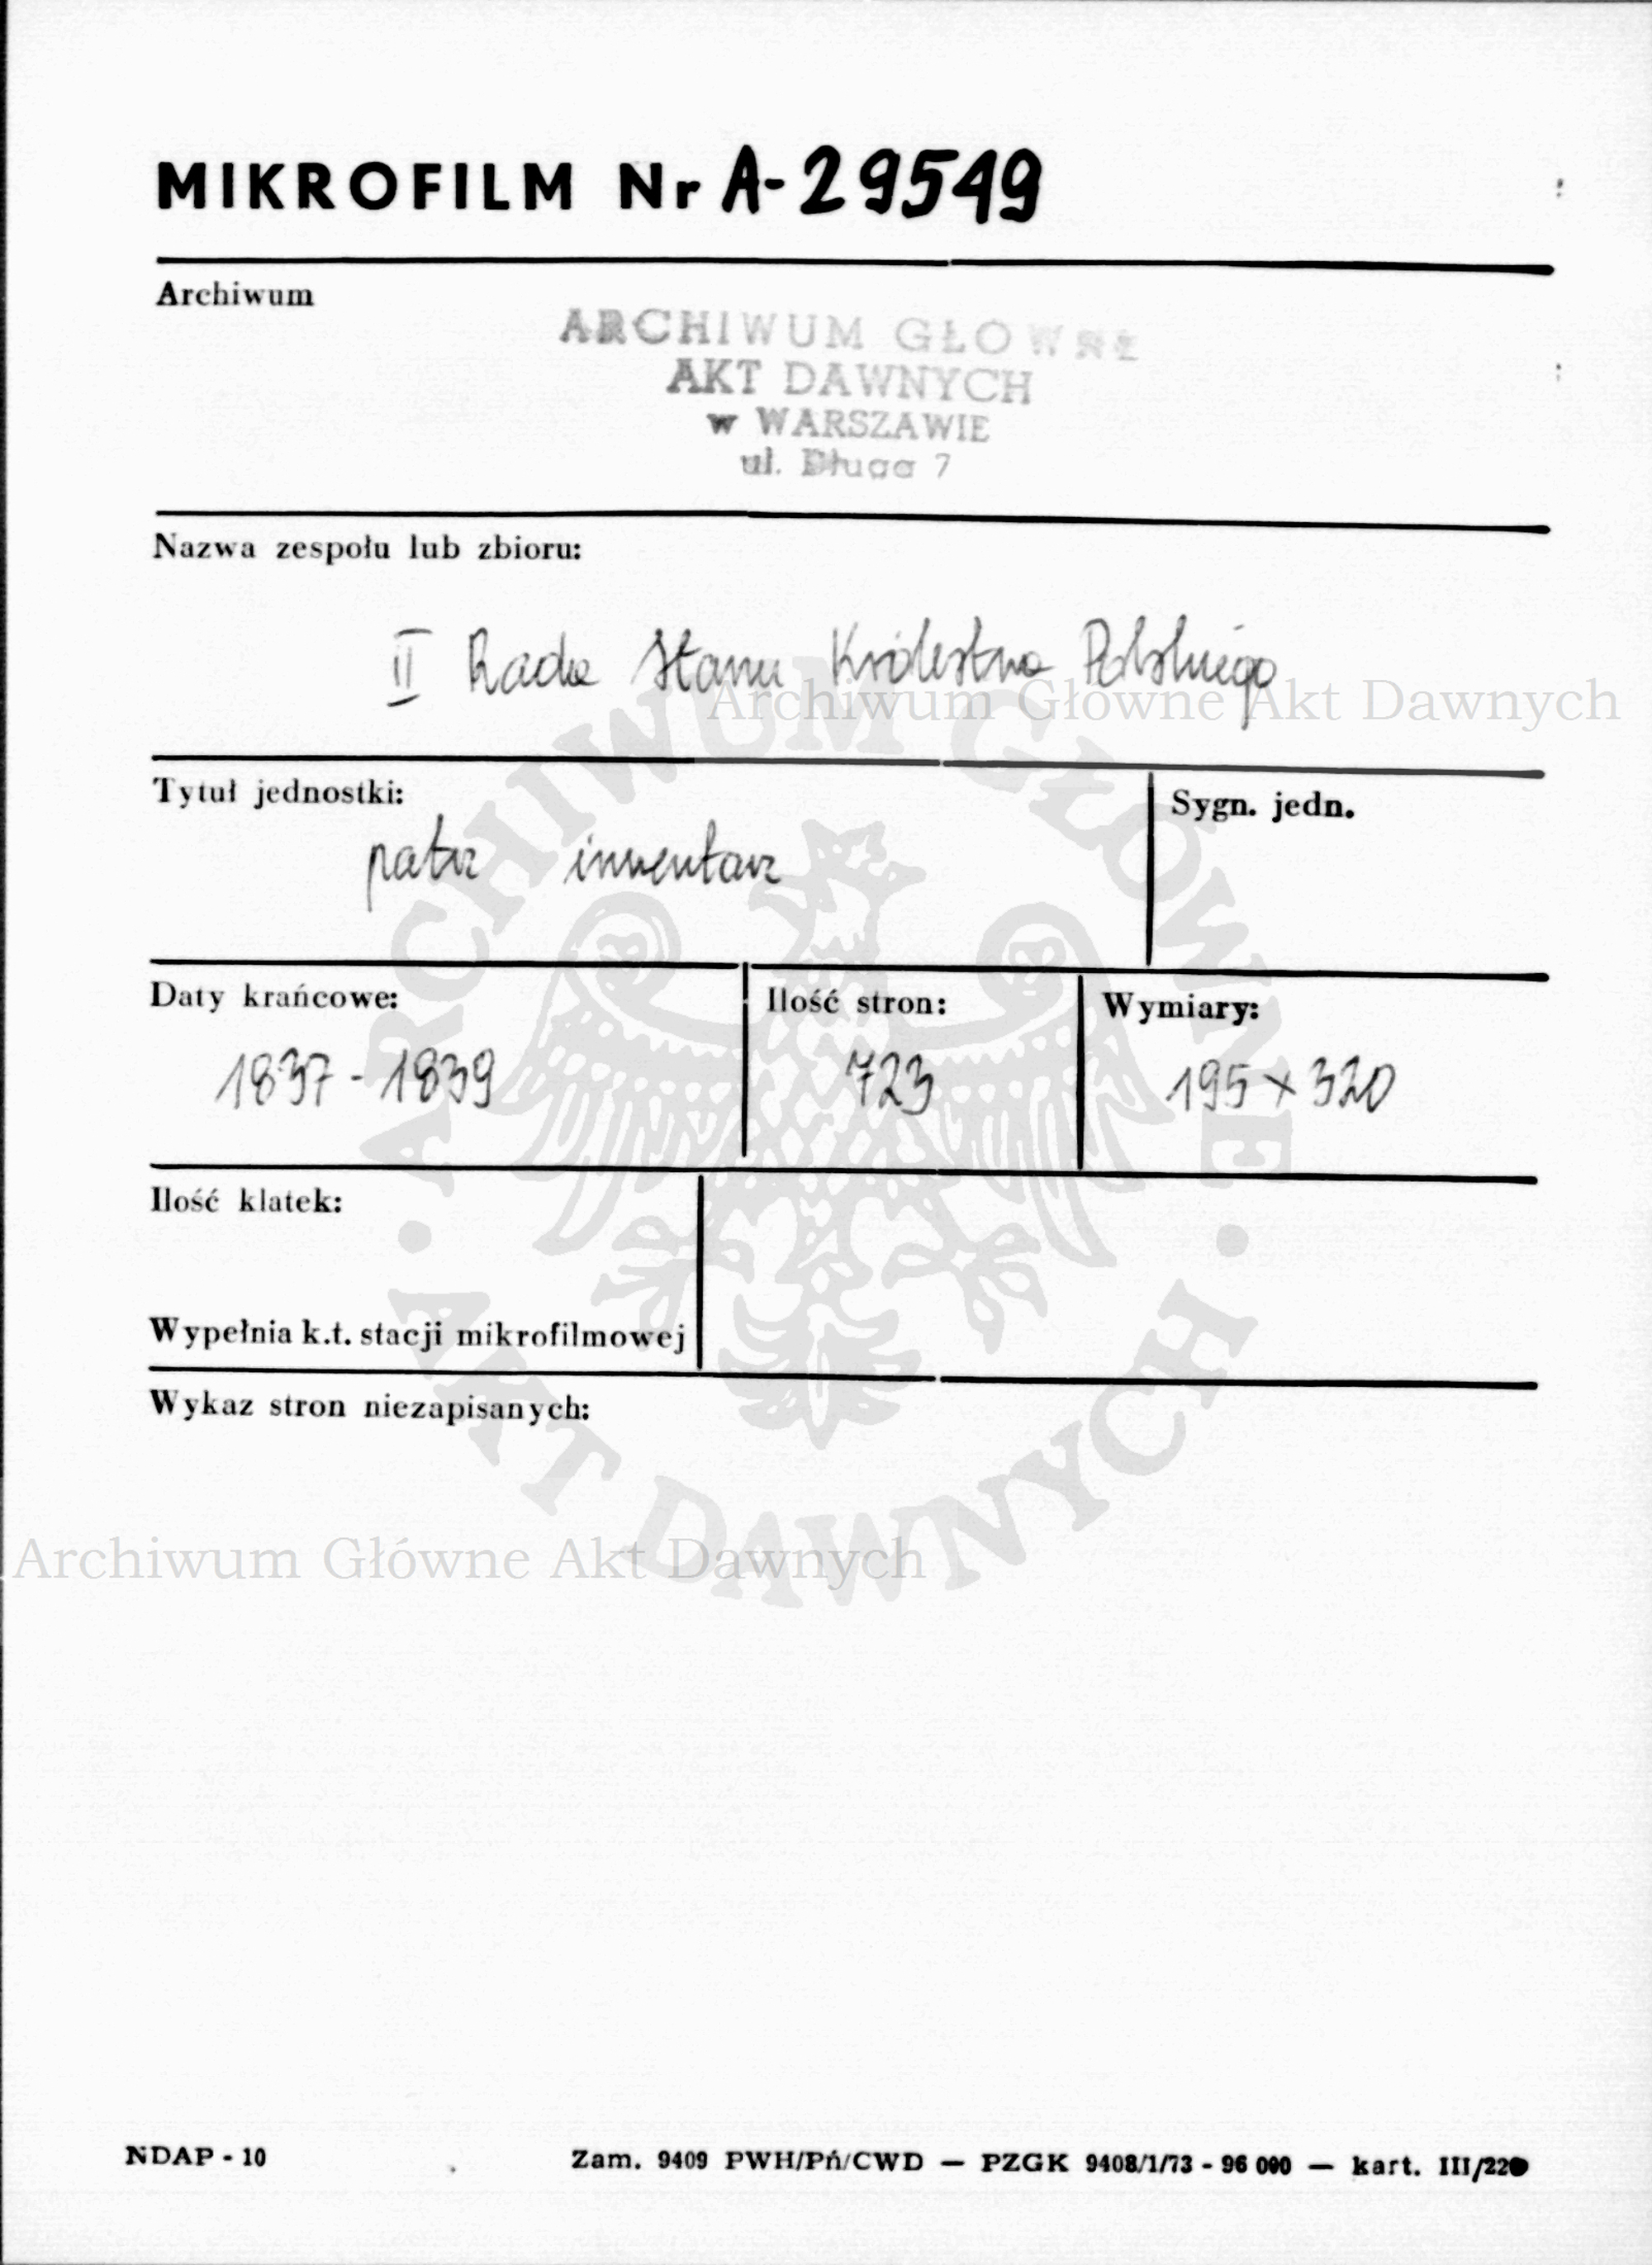 MIKROFILM Nr A-29549
Archiwum
ARCHIWUM GŁÓWNE
AKT DAWNYCH
w WARSZAWIE
ul. Długa 7
Nazwa zespołu lub zbioru:
II Rada Stanu Królestwa Polskiego
Archiwum Główne Akt Dawnych
Tytuł jednostki:
Sygn. jedn.
patrz inwentarz
Daty krańcowe:
Ilość stron:
Wymiary:
1837 - 1839
723
195 x 320
Ilość klatek:
Wypełnia k.t. stacji mikrofilmowej
Wykaz stron niezapisanych:
ARCHIWUM GŁÓWNE
AKT DAWNYCH
Archiwum Główne Akt Dawnych
NDAP - 10
Zam. 9409 PWH/Pń/CWD — PZGK 9408/1/73 - 96 000 — kart. III/220